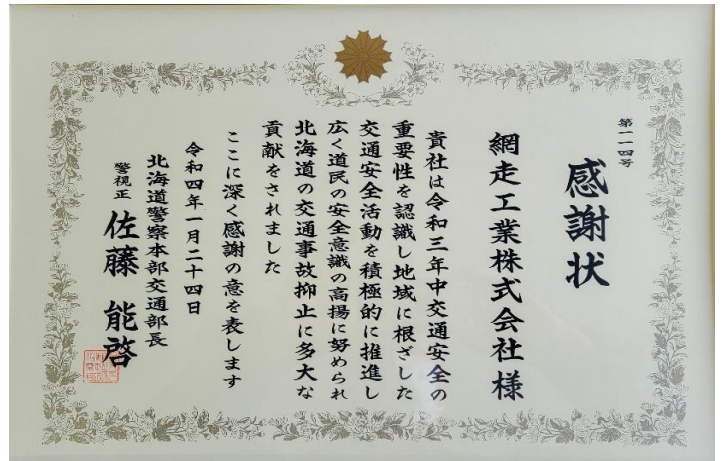 第一一四号
感謝状
網走工業株式会社様
貴社は令和三年中交通安全の
重要性を認識し地域に根ざした
交通安全活動を積極的に推進し
広く道民の安全意識の高揚に努められ
北海道の交通事故抑止に多大な
貢献をされました
ここに深く感謝の意を表します
令和四年一月二十四日
北海道警察本部交通部長
警視正 佐藤 能啓